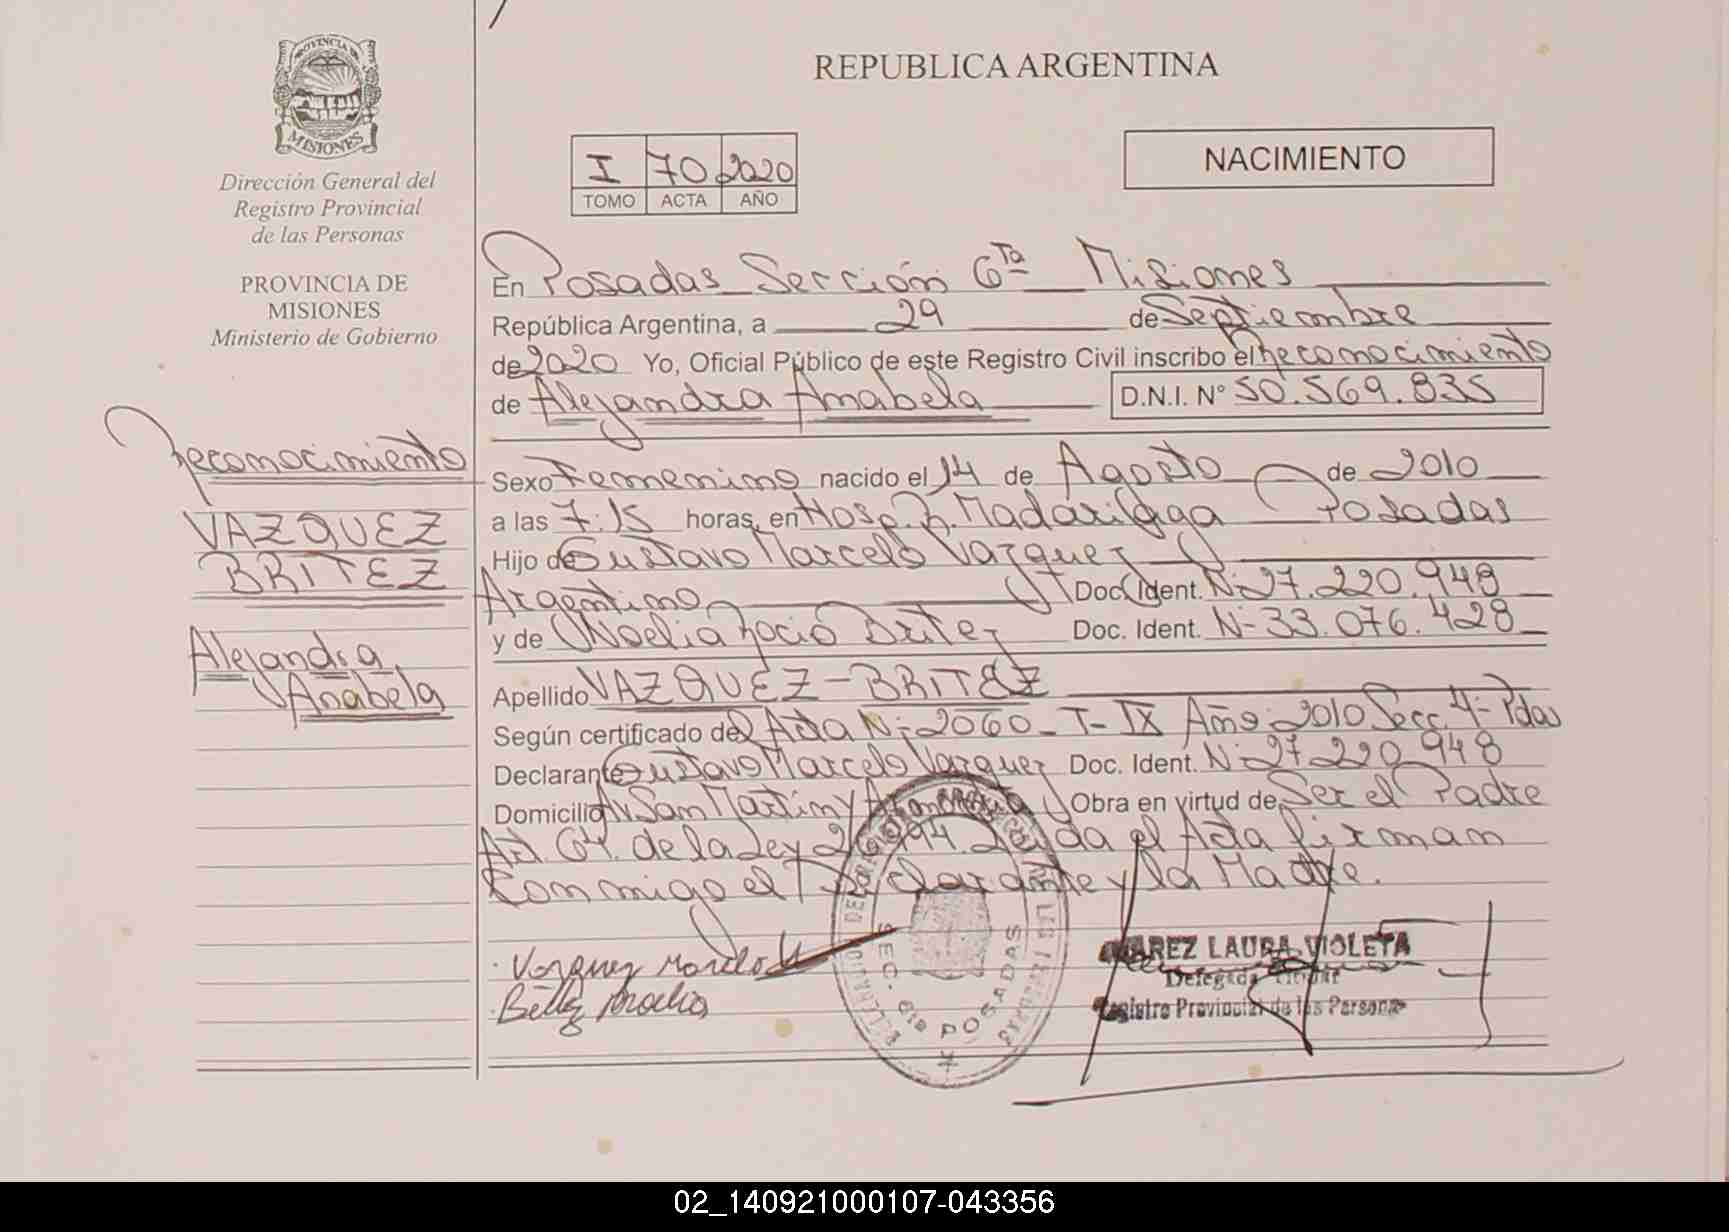 PROVINCIA DE
MISIONES
Dirección General del
Registro Provincial
de las Personas
PROVINCIA DE
MISIONES
Ministerio de Gobierno
Reconocimiento
VAZQUEZ
BRITEZ
Alejandra
Anabela
REPUBLICA ARGENTINA
I 70 2020
TOMO ACTA AÑO
NACIMIENTO
En Posadas Sección 6ta Misiones
República Argentina, a 29 de Septiembre
de 2020 Yo, Oficial Público de este Registro Civil inscribo el Reconocimiento
de Alejandra Anabela D.N.I. N° 50.569.835
Sexo Femenino nacido el 14 de Agosto de 2010
a las 7:15 horas, en Hosp. R. Madariaga Posadas
Hijo de Gustavo Marcelo Vazquez
Argentino Doc. Ident. N- 27.220.948
y de Noelia Rocio Britez Doc. Ident. N- 33.076.428
Apellido VAZQUEZ - BRITEZ
Según certificado del Acta N- 2060 - T- IX Año 2010 Secc. 4- Pdas
Declarante Gustavo Marcelo Vazquez Doc. Ident. N- 27.220.948
Domicilio Av San Martin y Obra en virtud de Ser el Padre
Art. 64. de la Ley 26.994. Leída el Acta firman
Conmigo el Declarante y la Madre.
Vazquez Marcelo
Noelia
SEC. 6ta POSADAS
LAURA VIOLETA
Delegada Titular
Registro Provincial de las Personas
02_140921000107-043356